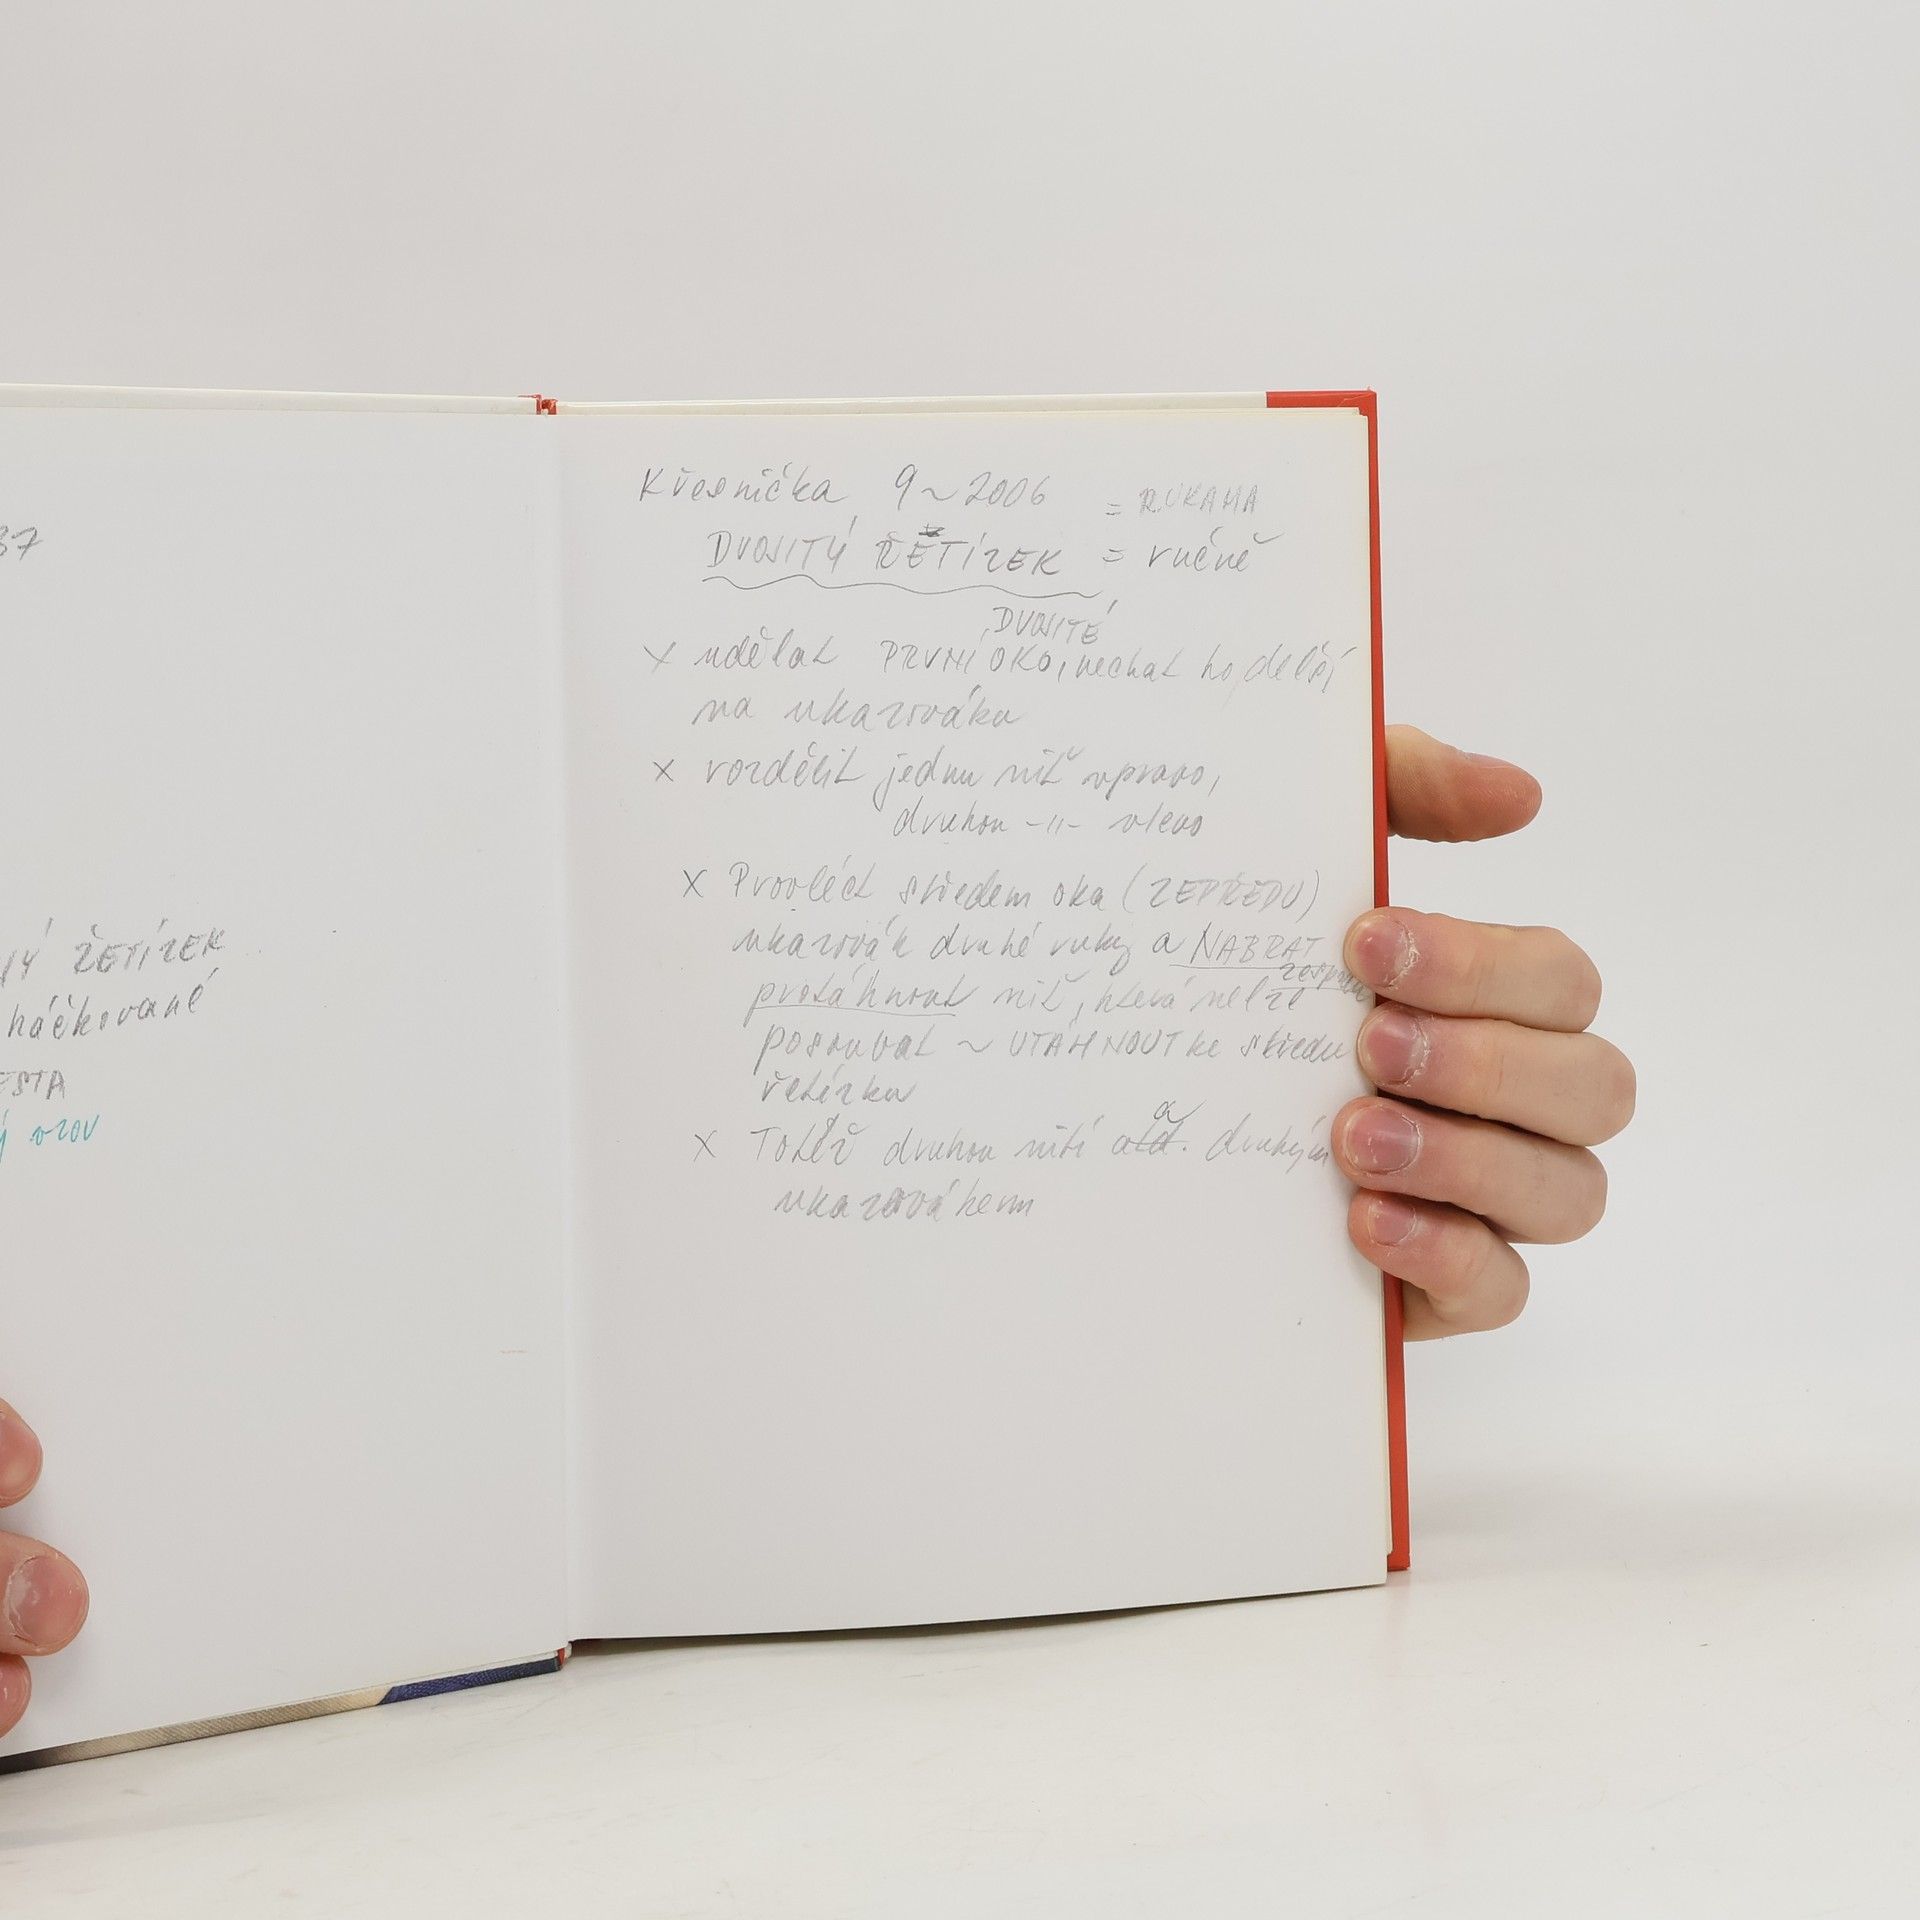 37
ŽETÍZEK
háčkované
vzov
Křesnička 9~2006 = RUKAMA
DVOJITÝ ŘETÍZEK = ručně
DVOJITÉ
X udělat PRVNÍ OKO, nechat ho delší
na ukazováku
X rozdělit jednu niť vpravo,
druhou -11- vlevo
X Provléct středem oka (ZEPŘEDU)
ukazovák druhé ruky a NABRAT
zespoda
protáhnout niť, která nelze
posouvat ~ UTÁHNOUT ke středu
řetízku
a
X Totéž druhou nití atd. druhým
ukazovákem